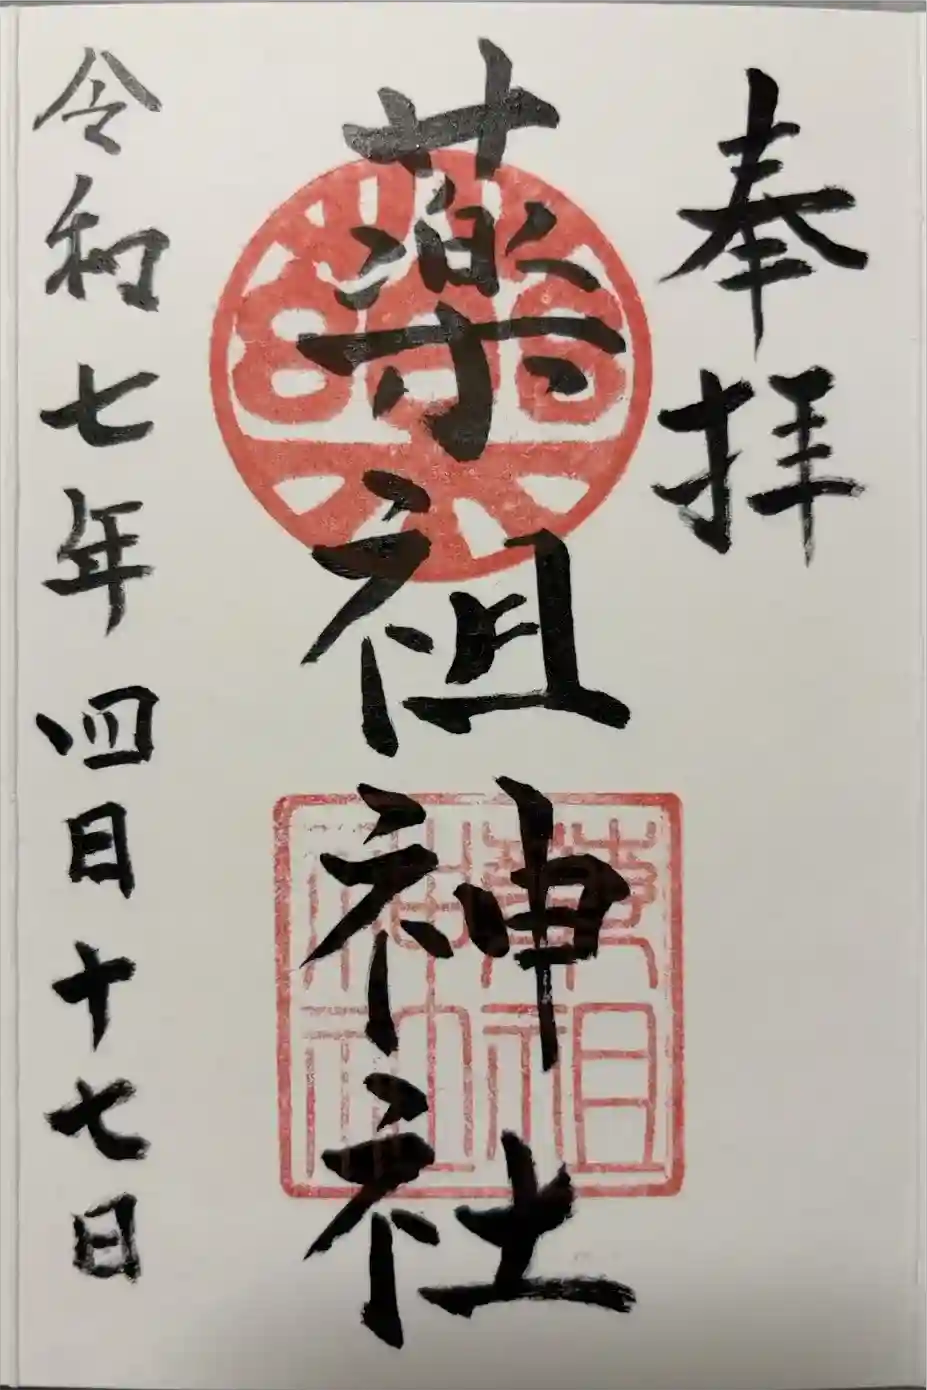 奉拝
薬祖神社
令和七年四日十七日
薬祖
神社